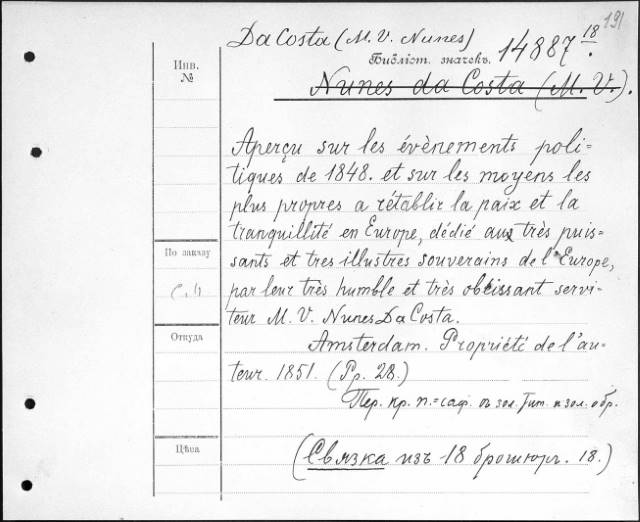 191
Da Costa (M. V. Nunes)
Библіот. значекъ. 14887 18
Инв. №
Nunes da Costa (M. V.).
Aperçu sur les évènements poli=
tiques de 1848. et sur les moyens les
plus propres a rétablir la paix et la
tranquillité en Europe, dédié aux très puis-
По заказу
sants et tres illustres souverains de l'Europe,
par leur très humble et très obéissant servi-
teur M. V. Nunes Da Costa.
Откуда
Amsterdam. Propriété de l'au-
teur. 1851. (Pp. 28.)
Пер. кр. п.=саф. съ зол. тит. и зол. обр.
Цѣна
(Связка изъ 18 брошюръ. 18.)